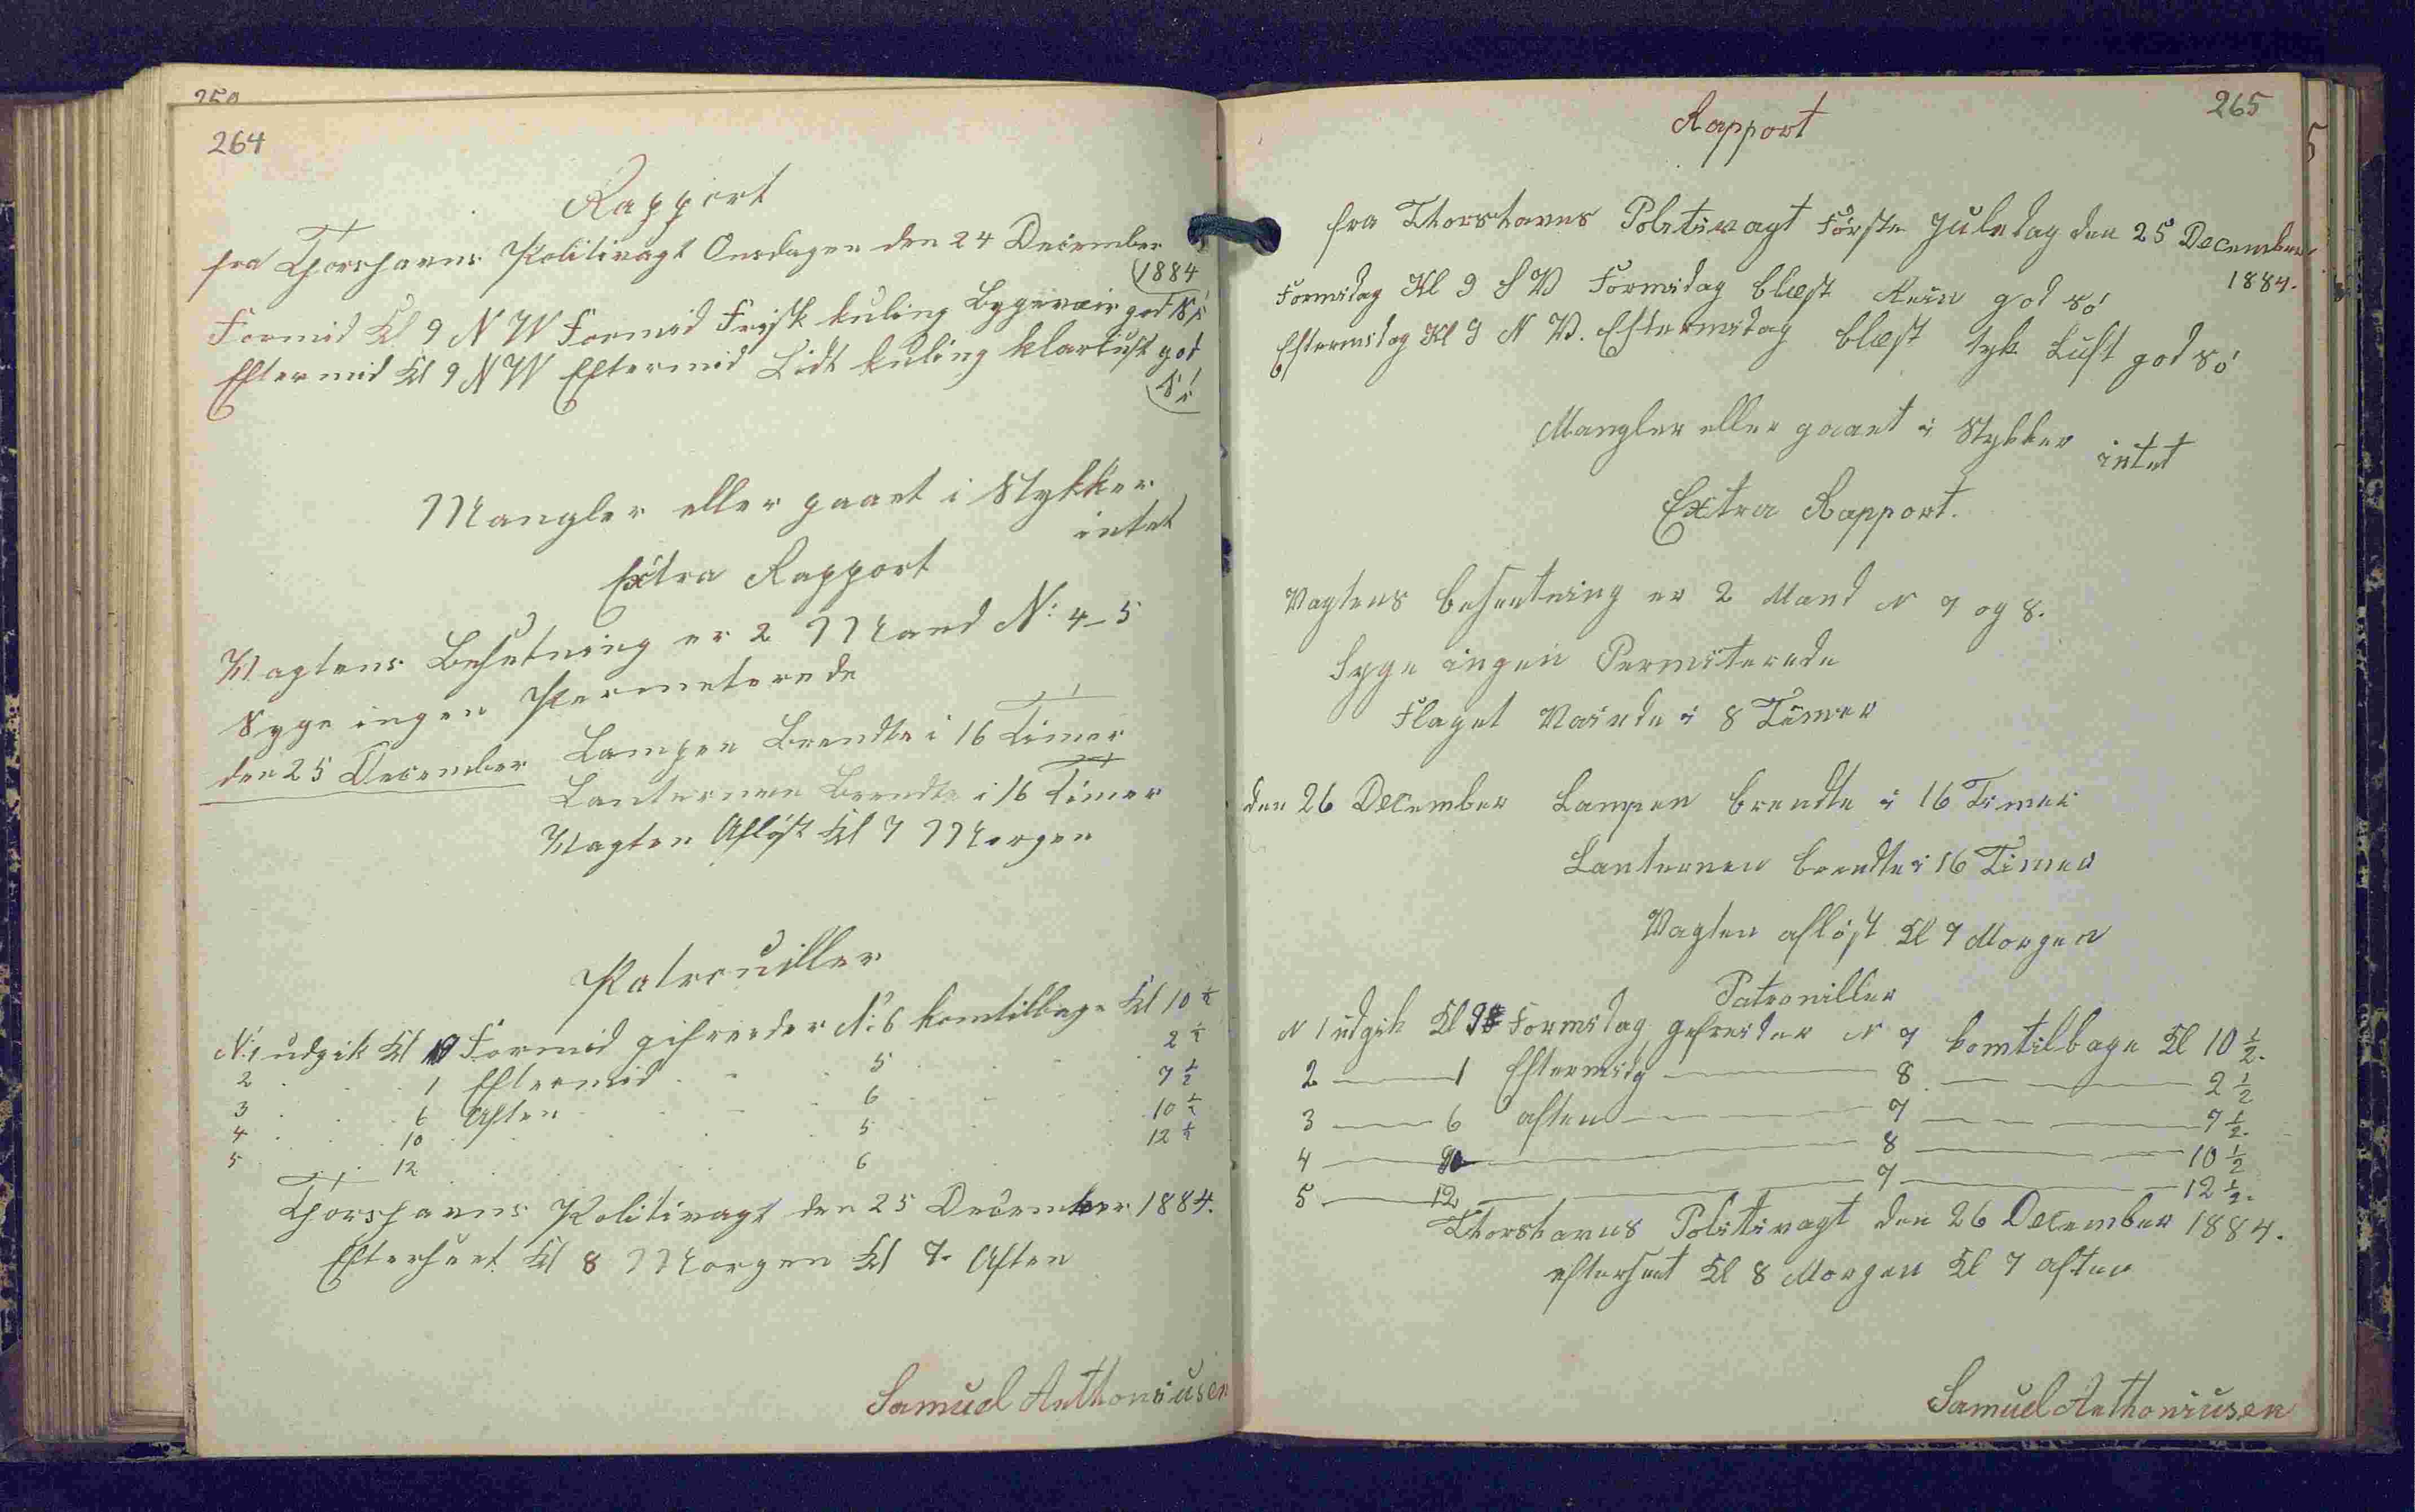 264
Rapport
fra Thorshavns Politivagt Onsdagen den 24 December
1884
Formid Kl 9 N W Formid Frisk kuling Bygevair god Sö
Eftermid Kl 9 N W Eftermid Lidt kuling klarluft god
Sö
Mangler eller gaaet i Stykker
intet
Extra Rapport
Vagtens Besetning er 2 Mand No 4-5
Syge ingen Permeterede
den 25 December Lampen Brendte i 16 Timer
Lanternen Brendte i 16 Timer
Vagten Aflöst Kl 7 Morgen
Patrouiller
No 1 udgik Kl Formid gefreeder No 6 komtilbage Kl 10 ½
2 1 Eftermid 5 2 ½
3 6 Aften 6 7 ½
4 10 5 10 ½
5 12 6 12 ½
Thorshavns Politivagt den 25 December 1884.
Efterseet Kl 8 Morgen Kl 7 Aften
Samuel Anthoniusen
265
Rapport
fra Thorshavns Politivagt Förste Juledag den 25 December
1884.
Formidag Kl 9 S W Formidag blæst Rein god Sö
Eftermidag Kl 9 N W. Eftermidag blæst tyk Luft god Sö
Mangler eller gaaet i Stykker intet
Extra Rapport.
Vagtens besættning er 2 Mand N 7 og 8.
Syge ingen Permiterede
Flaget Vaiede i 8 Timer
den 26 December Lampen brendte i 16 Timer
Lanternen brendte i 16 Timer
Vagten aflöst Kl 7 Morgen
Patrouiller
N 1 udgik Kl Formidag gefreider N 7 komtilbage Kl 10 ½.
2 1 Eftermidg 8 2 ½
3 6 aften 7 7 ½.
4 8 10 ½
5 12 7 12 ½.
Thorshavns Politivagt den 26 December 1884.
efterseet Kl 8 Morgen Kl 7 aften
Samuel Anthoniusen